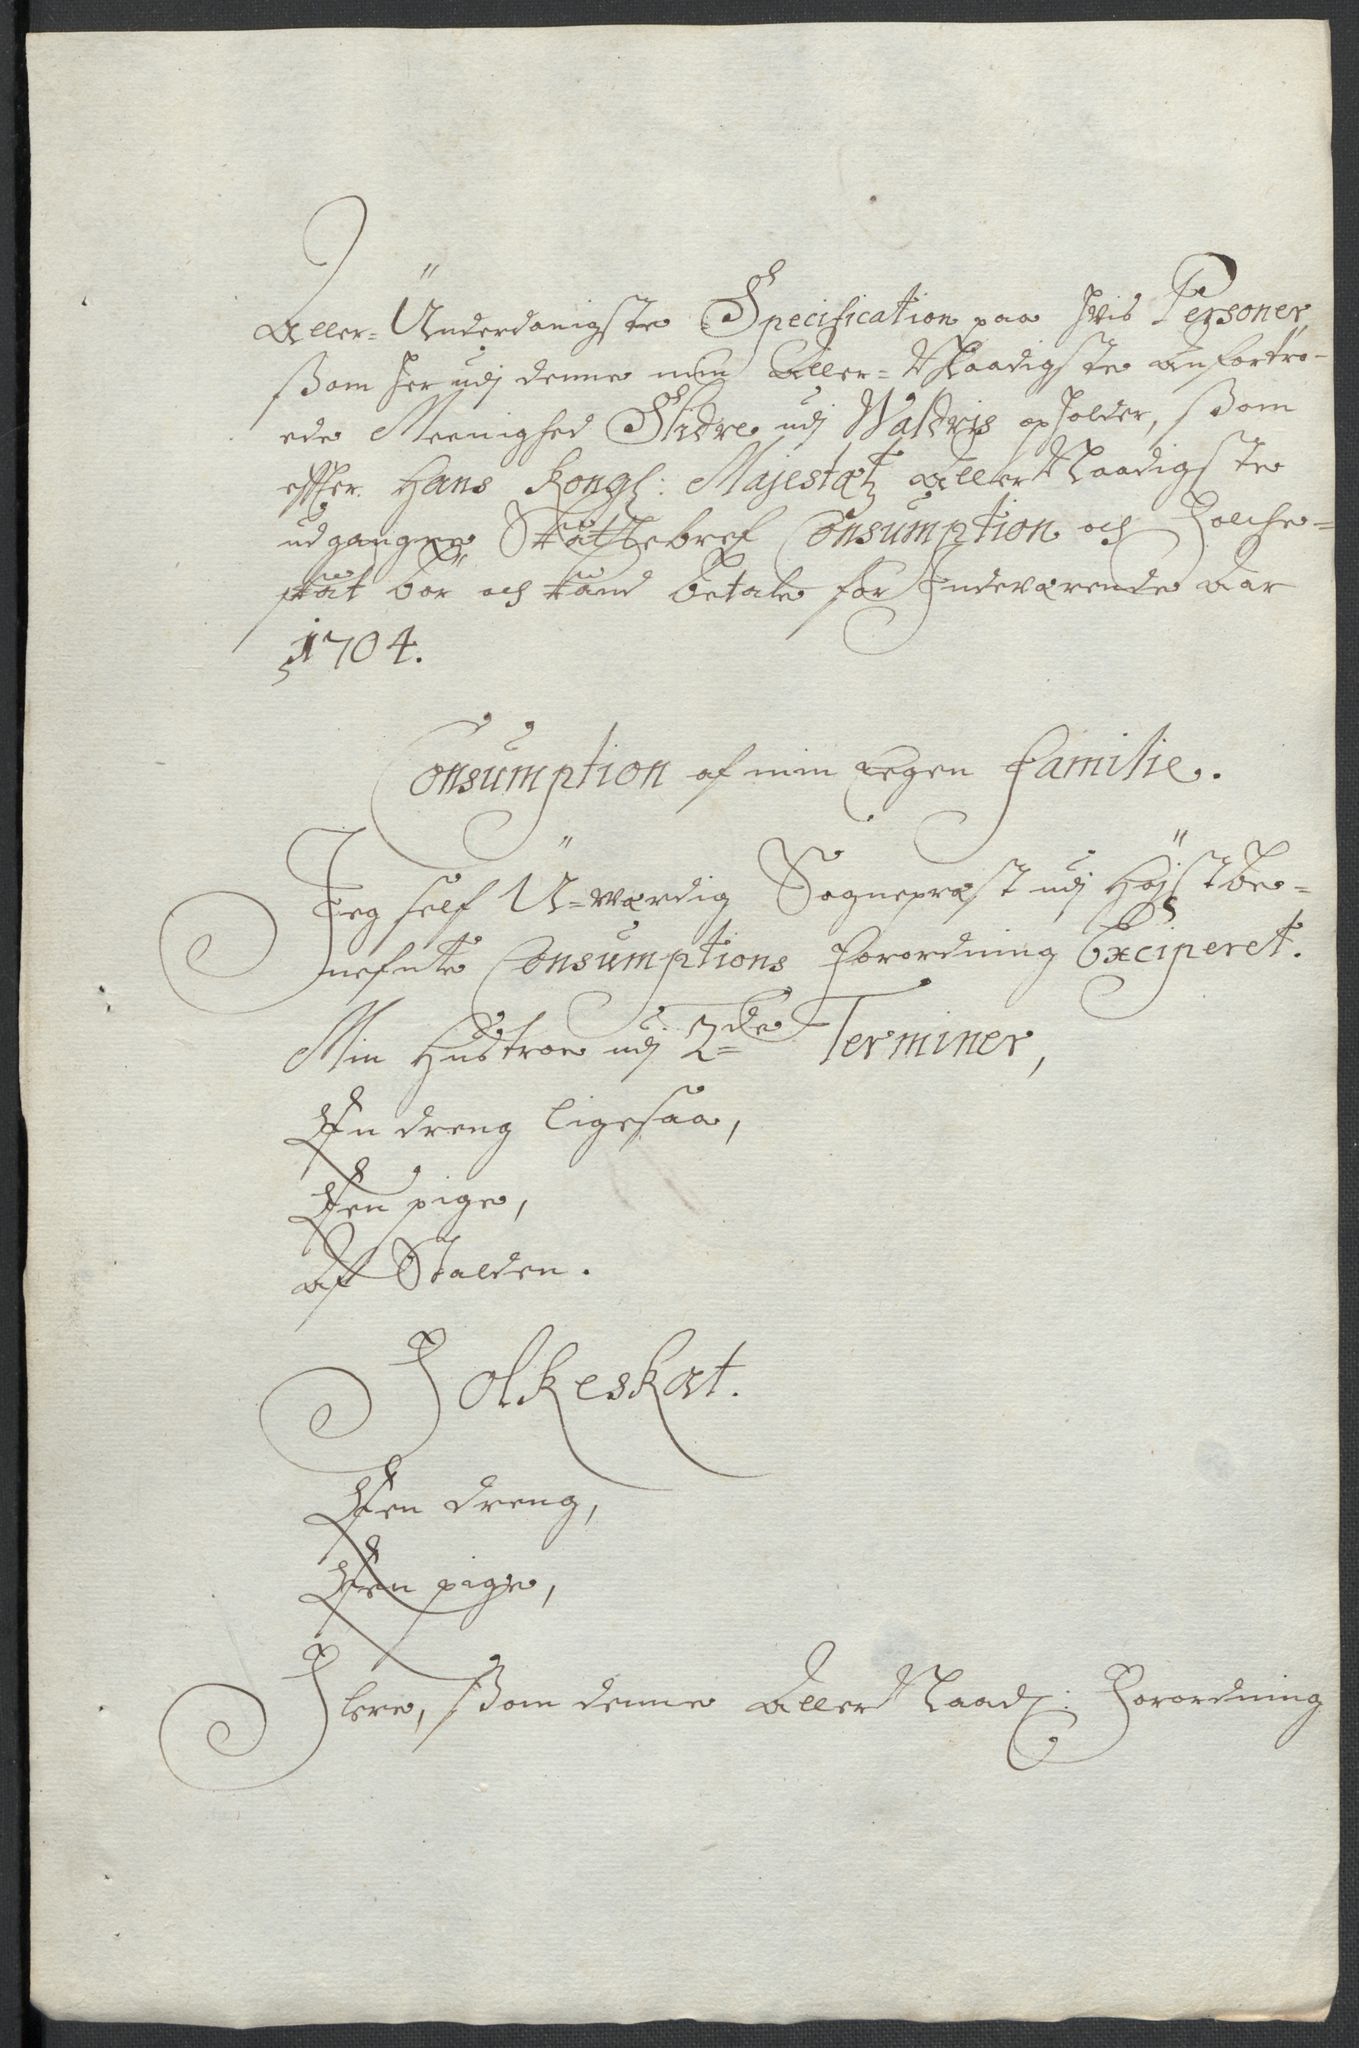 Aller-Underdanigste Specification paa hvis Personer
ßom her udj denne min Aller-Naadigste anfortro-
ede Meenighed Slidre udj Waldris opholder, ßom
effter Hans Kongl: Majestæt Aller Naadigste
udgangne Skattebref Consumption och Folche-
skat bør och kand betale for Indeværende Aar
1704.
Consumption af min Eegen familie.
Jeg self U-værdig Sognepræst udj Højstbe-
nefnte Consumptions forordning Exciperet.
Min Hustroe udj 2de Terminer,
En dreng ligesaa,
Een pige,
Af Stalden.
Folkeskat.
Een dreng,
Een pige,
Flere, ßom denne Aller Naad: Forordning